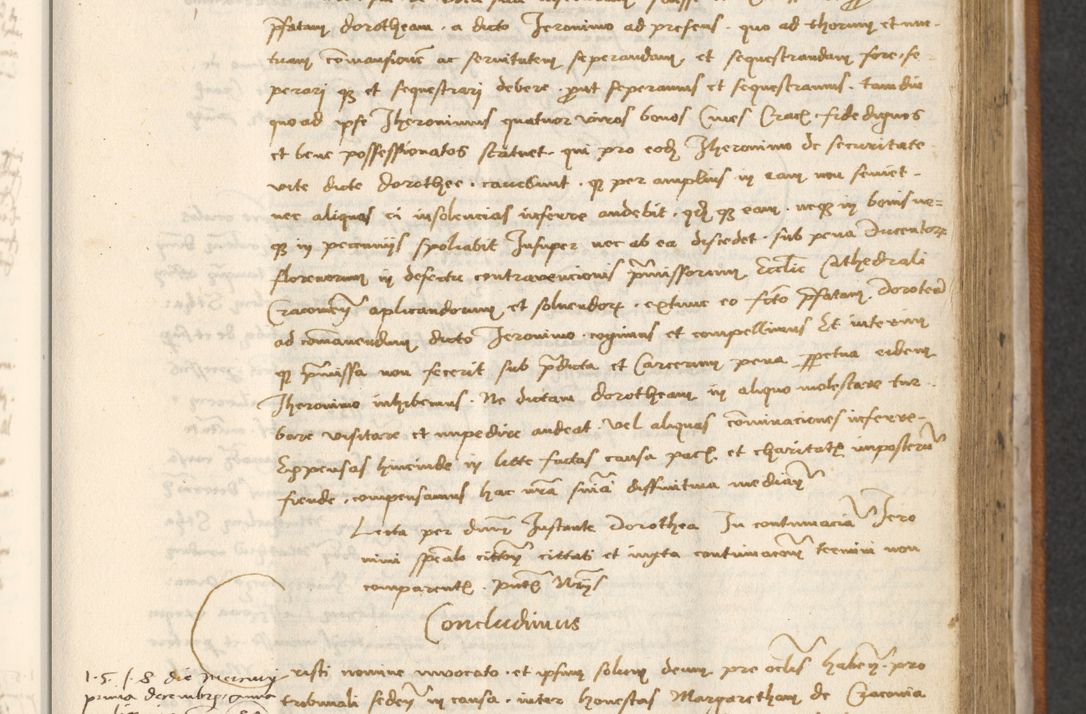 p̃fatam dorotheam · a dicto Jeronimo ad presens · quo ad thorum et mu-
tuam com̄ansionē ac seruitutem seperandam et sequestrandam fore · se-
perari q₃ et sequestrari debere · put seperamus et sequestramus · tamdiu
quoad ipse Jheronimus quatuor viros bonos Ciues Crac̄ · fidedignos
et bene possessionatos statuet · qui pro eod₃ Jheronimo de securitate
vite dicte Dorothee · cauebunt · q per amplius in eam non seuiet ·
nec aliquas ei insolencias inferre audebit · q₃ eam · neq₃ in bonis ne=
q₃ in pecuniis spoliabit Insuper nec ab ea discedet · sub pena Ducentor₄
florenorum in defectu contravencionis p̄missorum Eccliē Cathedrali
Cracouien̄ aplicandorum et soluendor₄ · extunc eo fc̄to p̃fatam Doroteā
ad com̄anendum dicto Jeronimo · cogimus et compellimus Et interim
q p̄missa non fecerit sub p̄dicta et Carcerum pena ppetua eidem
Jheronimo inhibemus · Ne dictam dorotheam in aliquo molestare tur-
bare visitare et impedire audeat · Vel aliquas com̄inaciones inferre ·
Expensas hincinde in lite factas causa pac̄ et charitat₃ imposterū
fiende · compensamus hac n̄ra sn̄ia diffinitiua median̄
Lecta per dnm̄ Instante Dorothea In contumacia Jero
nimi sp̄ealr cittōn̄ cittati et iuxta contumaciam termini non
comparent₃ · pn̄t₃ Nr̄ijs
Concludimus
risti nomine inuocato · et ipsum solum deum pre oc̄lis haben̄ · pro
1·5·1·8 die mercurij
tribunali seden̄ in causa · inter honestas Margaretham de Cracouia
prima decembr₃ anno